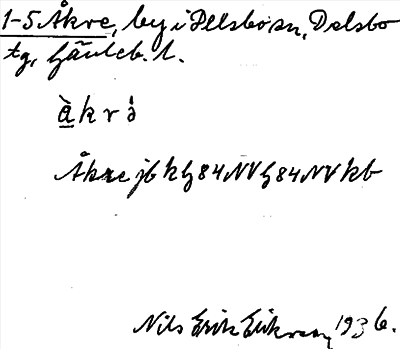 1-5 Åkre, by i Delsbo sn, Delsbo
tg, Gävleb. l.
àkrə̀
Åkre jb kg 84 NV g 84 NV kb
Nils Erik Eriksson 1936.